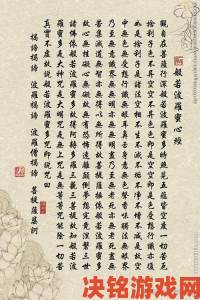 般若波羅蜜心經
觀自在菩薩行深般若波羅蜜多時照見五蘊皆空度一切苦
厄舍利子色不異空空不異色色即是空空即是色受想行識亦復
如是舍利子是諸法空相不生不滅不垢不淨不增不減是故空
中無色無受想行識無眼耳鼻舌身意無色聲香味觸法無眼界
乃至無意識界無無明亦無無明盡乃至無老死亦無老死盡無
苦集滅道無智亦無得以無所得故菩提薩埵依般若波羅蜜多
故心無罣礙無罣礙故無有恐怖遠離顛倒夢想究竟涅槃三世
諸佛依般若波羅蜜多故得阿耨多羅三藐三菩提故知般若波
羅蜜多是大神咒是大明咒是無上咒是無等等咒能除一切苦
真實不虛故說般若波羅蜜多咒即說咒曰
揭諦揭諦 波羅揭諦 波羅僧揭諦 菩提薩婆訶
决铭游戏网